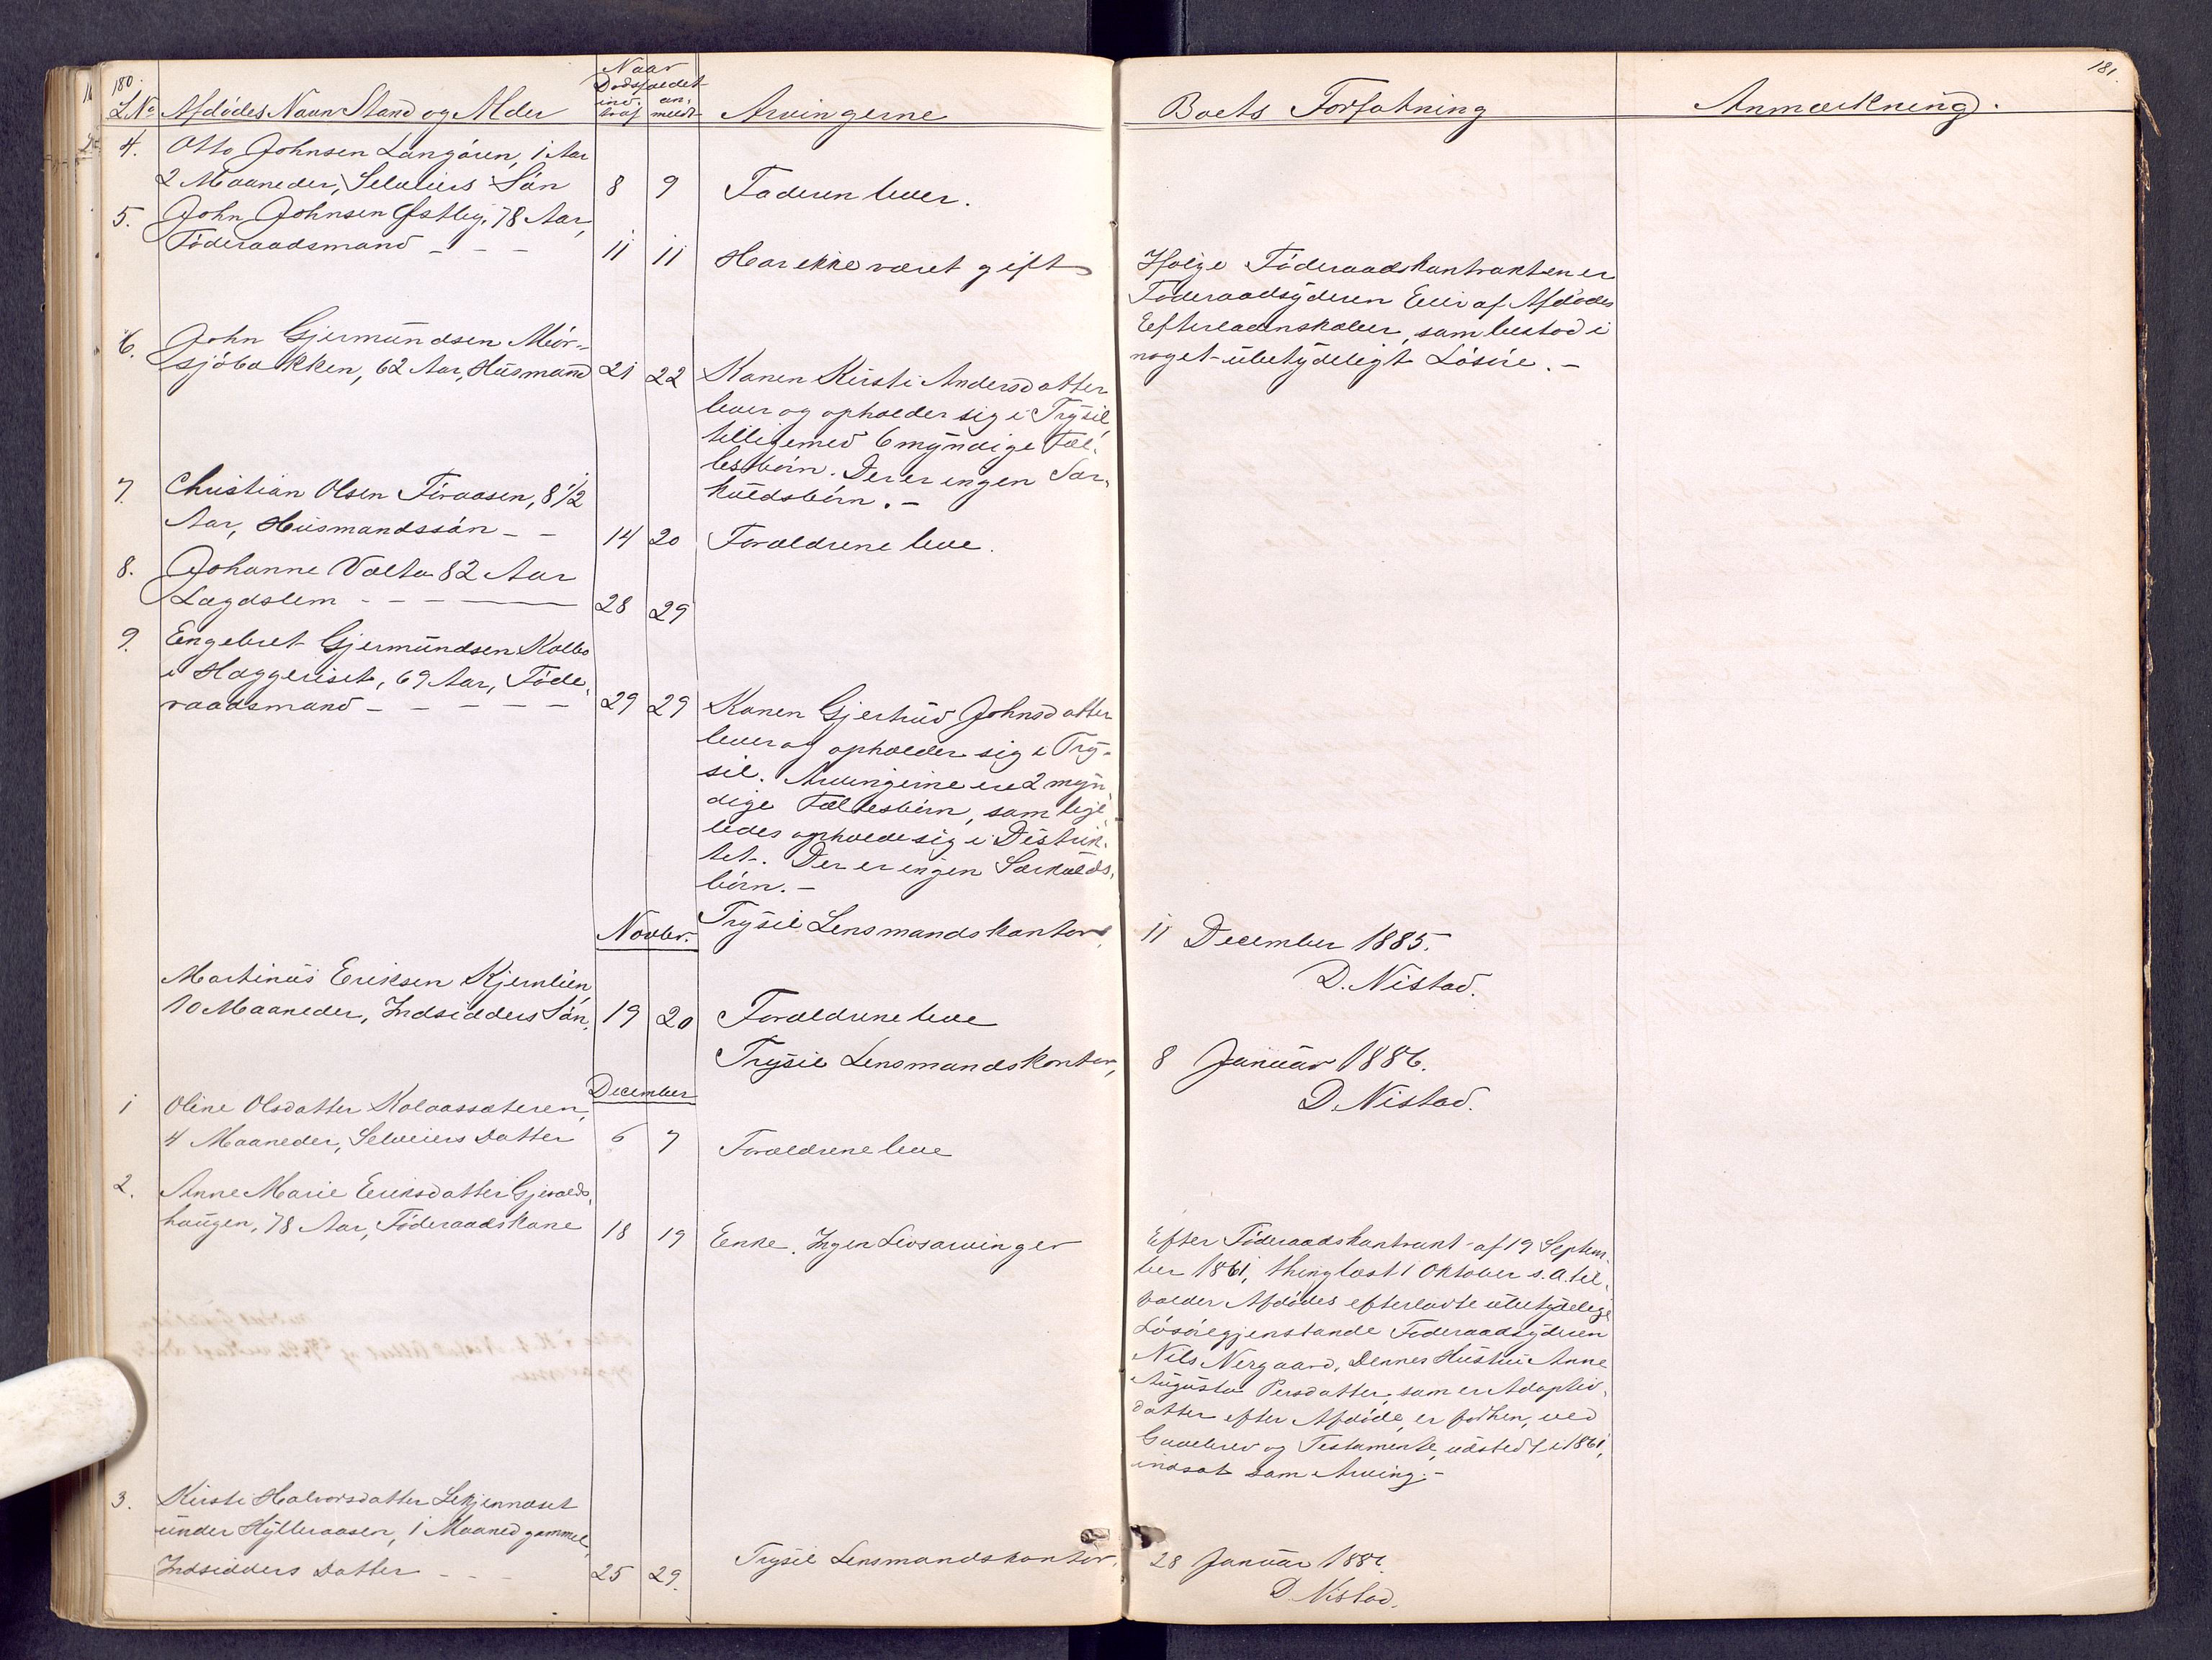 180.
181.
Naar
Dødsfaldet
L No Afdødes Navn Stand og Alder
ind- an-
traf meldt
Arvingerne
Boets Forfatning
Anmærkning.
4. Otto Johnsen Langören, 1 Aar
2 Maaneder, Selveiers Sön 8 9 Faderen lever.
5. John Johnsen Østby, 78 Aar,
Föderaadsmand - - - 11 11 Har ikke været gift
Ifølge Föderaadskontrakten er
Föderaadsyderen Eier af Afdødes
Efterladenskaber, som bestod i
noget ubetydeligt Lösöre. -
6. John Gjermundsen Mör-
sjöbakken, 62 Aar, Husmand 21 22 Konen Kirsti Andersdatter
lever og opholder sig i Trysil,
tilligemed 6 myndige Fæl-
lesbörn. Der er ingen Sær-
kuldsbörn. -
7. Christian Olsen Furaasen, 8 1/2
Aar, Husmandssön - - 14 20 Forældrene leve.
8. Johanne Valta 82 Aar
Lægdslem - - - - 28 29
9. Engebret Gjermundsen Kolbo
i Haggeriset, 69 Aar, Föde-
raadsmand - - - - - 29 29 Konen Gjertrud Johnsdatter
lever og opholder sig i Try-
sil. Arvingerne ere 2 myn-
dige Fællesbörn, som lige-
ledes opholde sig i Distrik-
tet. Der er ingen Særkulds-
börn. -
Novbr. Trysil Lensmandskontor, 11 December 1885.
D. Nistad.
Martinus Eriksen Kjernlien,
10 Maaneder, Indsidders Sön, 19 20 Forældrene leve
Trysil Lensmandskontor, 8 Januar 1886.
D. Nistad.
December
1 Oline Olsdatter Kolaassæteren,
4 Maaneder, Selveiers Datter 6 7 Forældrene leve
2. Anne Marie Eriksdatter Gjevalds-
haugen, 78 Aar, Föderaadskone 18 19 Enke. Ingen Livsarvinger
Efter Föderaadskontrakt af 19 Septem-
ber 1861, thinglæst 1 Oktober s. A. til-
falder Afdødes efterladte ubetydelige
Lösöregjenstande Föderaadsyderen
Nils Nergaard. Dennes Hustru Anne
Augusta Persdatter, som er Adoptiv-
datter efter Afdøde, er forhen, ved
Gavebrev og Testamente, udstedt i 1861,
indsat som Arving. -
3. Kirsti Halvorsdatter Lekjennæset
under Hylleraasen, 1 Maaned gammel,
Indsidders Datter - - - 25 29. Trysil Lensmandskontor, 28 Januar 1886.
D. Nistad.